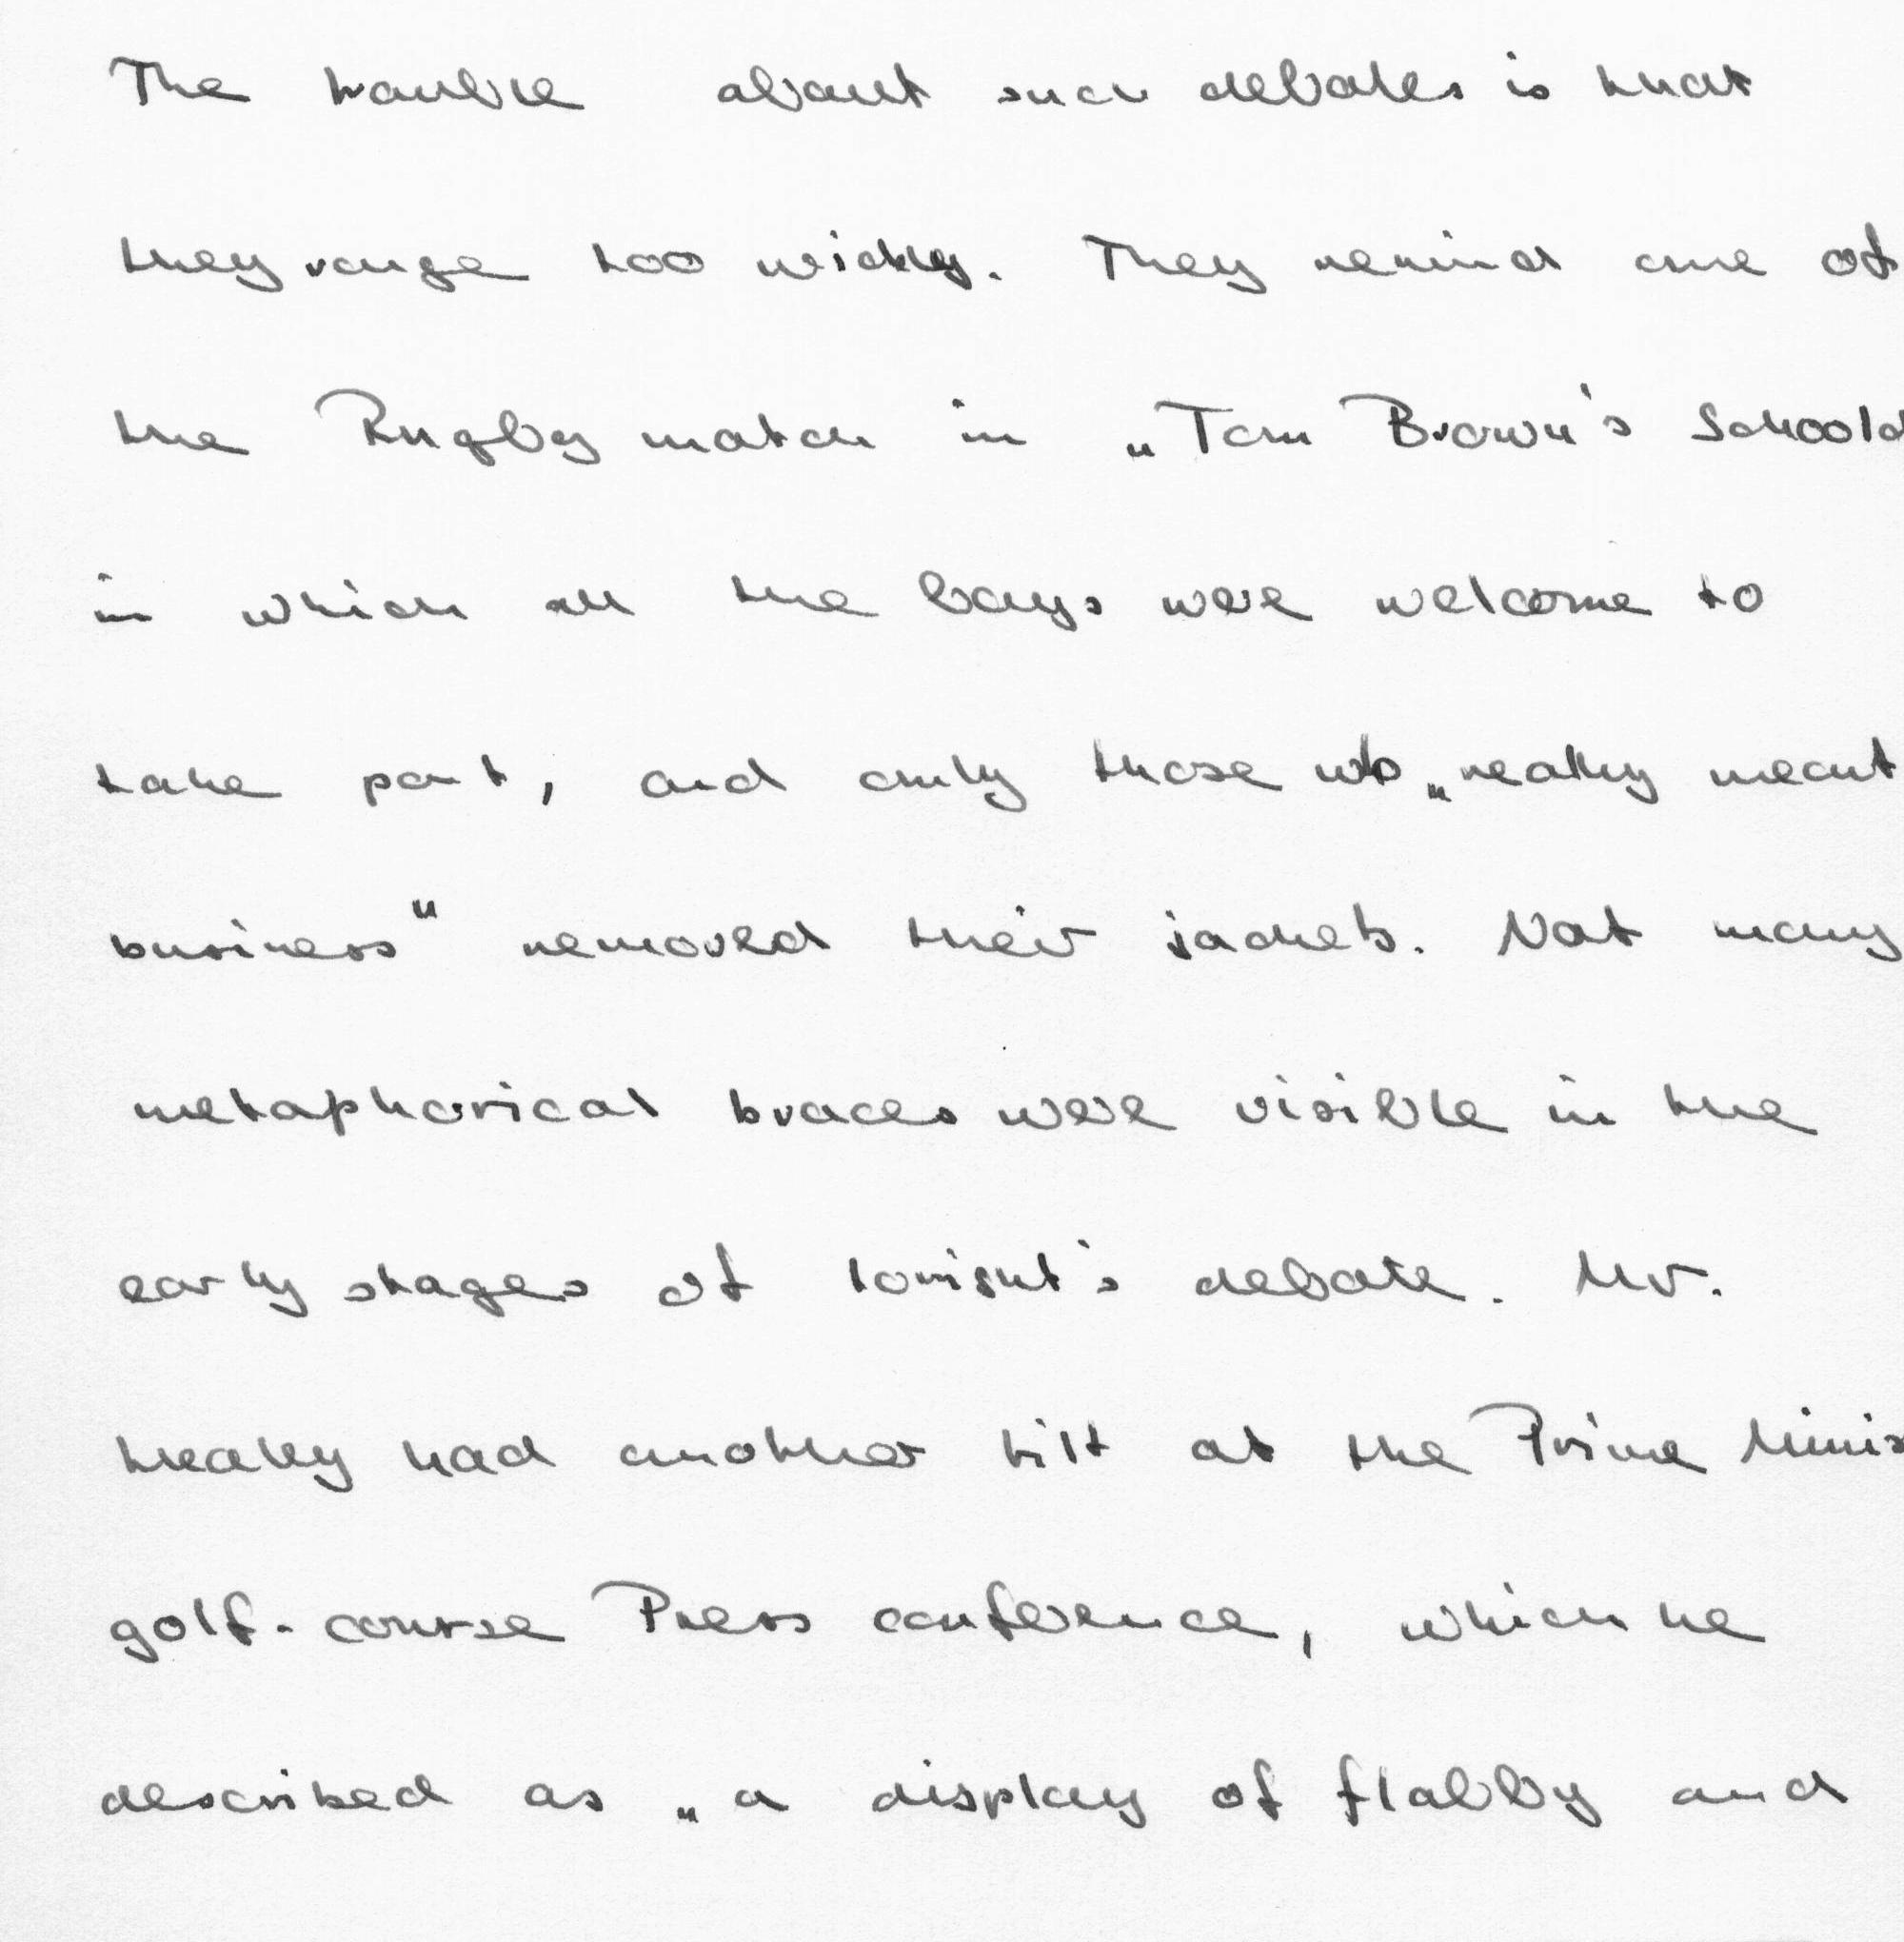 The trouble about such debates is that
they range too widely. They remind one of
the Rugby match in „Tom Brown's Schoold
in which all the boys were welcome to
take part, and only those who „really meant
business" removed their jackets. Not many
metaphorical braces were visible in the
early stages of tonight's debate. Mr.
Healey had another tilt at the Prime Minis
golf-course Press conference, which he
described as „a display of flabby and